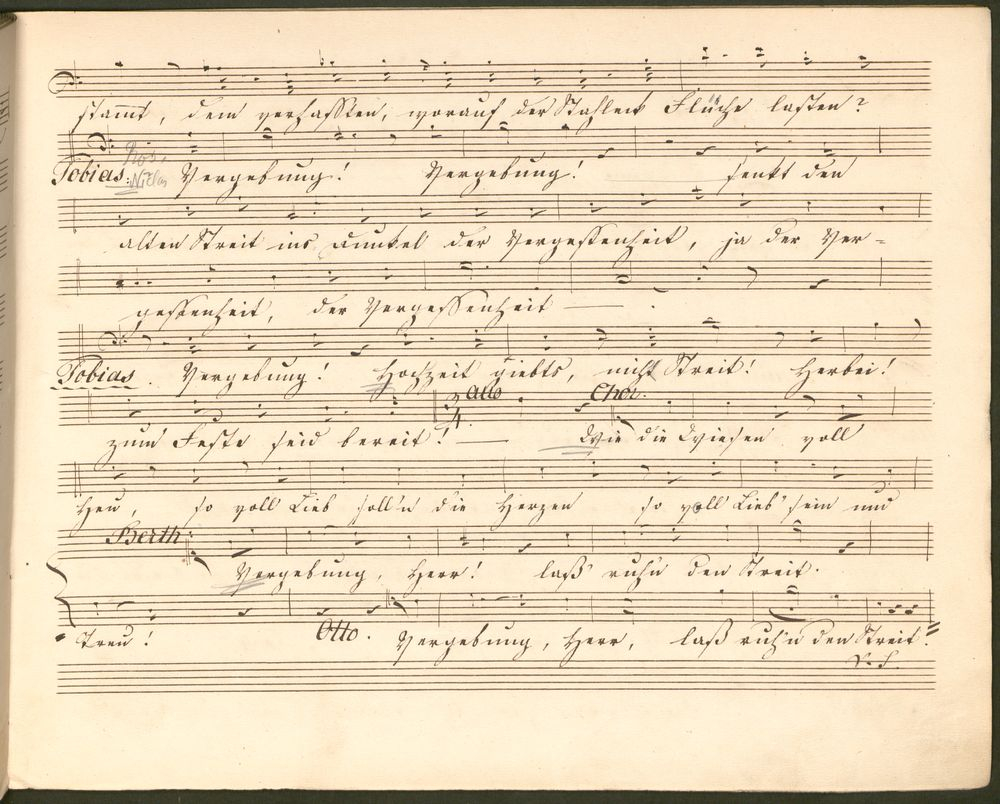 stammt, dem verhassten, worauf der Stahleck Flüche lasten?
Rob.
Tobias: Niclas Vergebung! Vergebung! senkt den
alten Streit ins Dunkel der Vergessenheit, ja der Ver-
gessenheit, der Vergessenheit
Tobias. Vergebung! Hochzeit giebts, nicht Streit! Herbei!
Allo Chor.
zum Feste seid bereit! — Wie die Wiesen voll
Heu, so voll Lieb soll'n die Herzen so voll Lieb' sein und
Berth:
Vergebung, Herr! laß ruh'n den Streit.
Treu! Otto. Vergebung, Herr, laß ruh'n den Streit.
V. S.